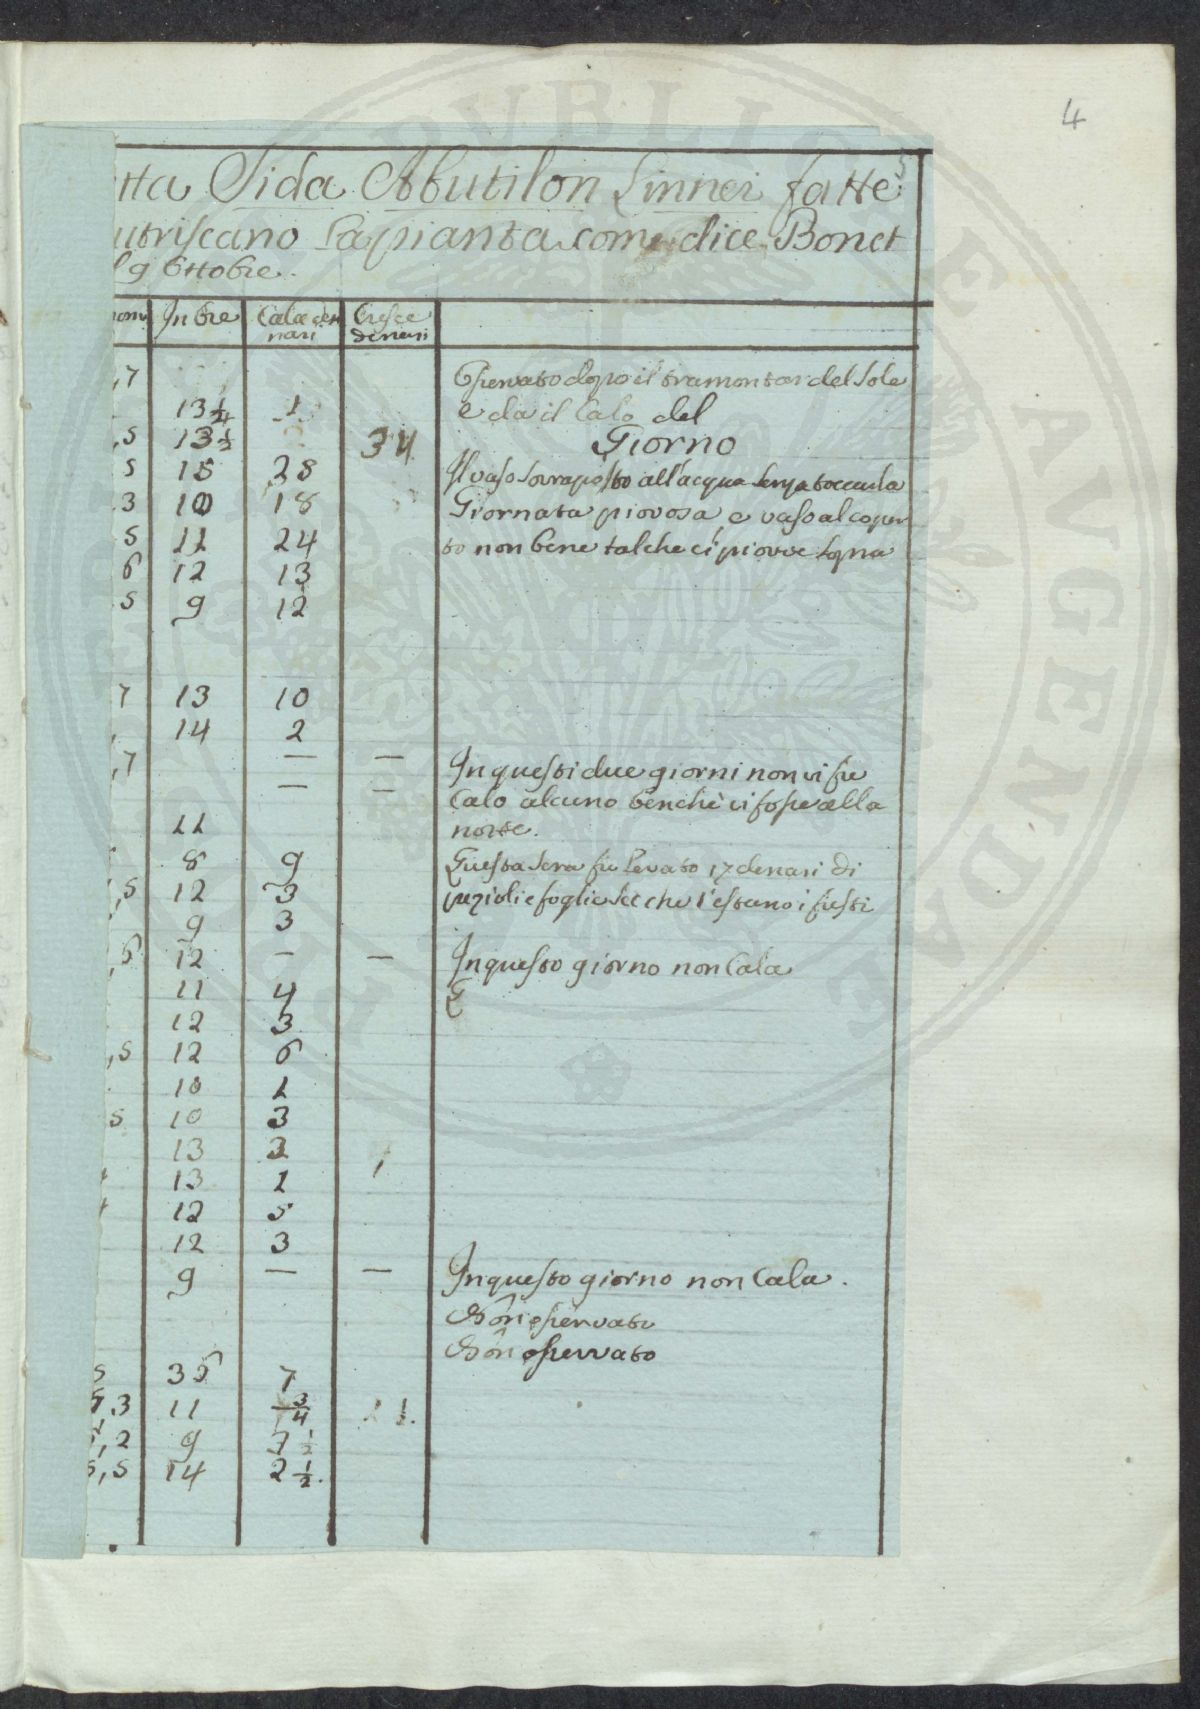 4
5
tta Sida Abutilon Linnei fatte
utriscano la pianta come dice Bonet
l 9 Ottobre.
nom. In Ore Cala de nari Cresce denari
,7 Osservato dopo il tramontar del Sole
13 1/4 1 e da il Calo del
,5 13 1/2 34 Giorno
5 15 28 Il vaso Sovraposto all'acqua senza toccarla
3 10 18 Giornata piovosa e vaso al coper
5 11 24 to non bene talche ci piovve sopra
6 12 13
5 9 12
7 13 10
14 2
,7 — — In questi due giorni non vi fu
— — Calo alcuno benchè vi fosse alla
11 notte.
8 9 Questa Sera fu levato 17 denari di
,5 12 3 e foglie che i fusti
9 3
,6 12 — — In questo giorno non Cala
11 4
12 3
,5 12 6
10 1
5 10 3
13 2
13 1
12 5
12 3
9 — — In questo giorno non Cala.
Nōn osservato
Nōn osservato
5 36 7
5,3 11 3/4 1.
,2 9 3 1/2
5,5 14 2 1/2.
RE PVBLICAE AVGENDAE